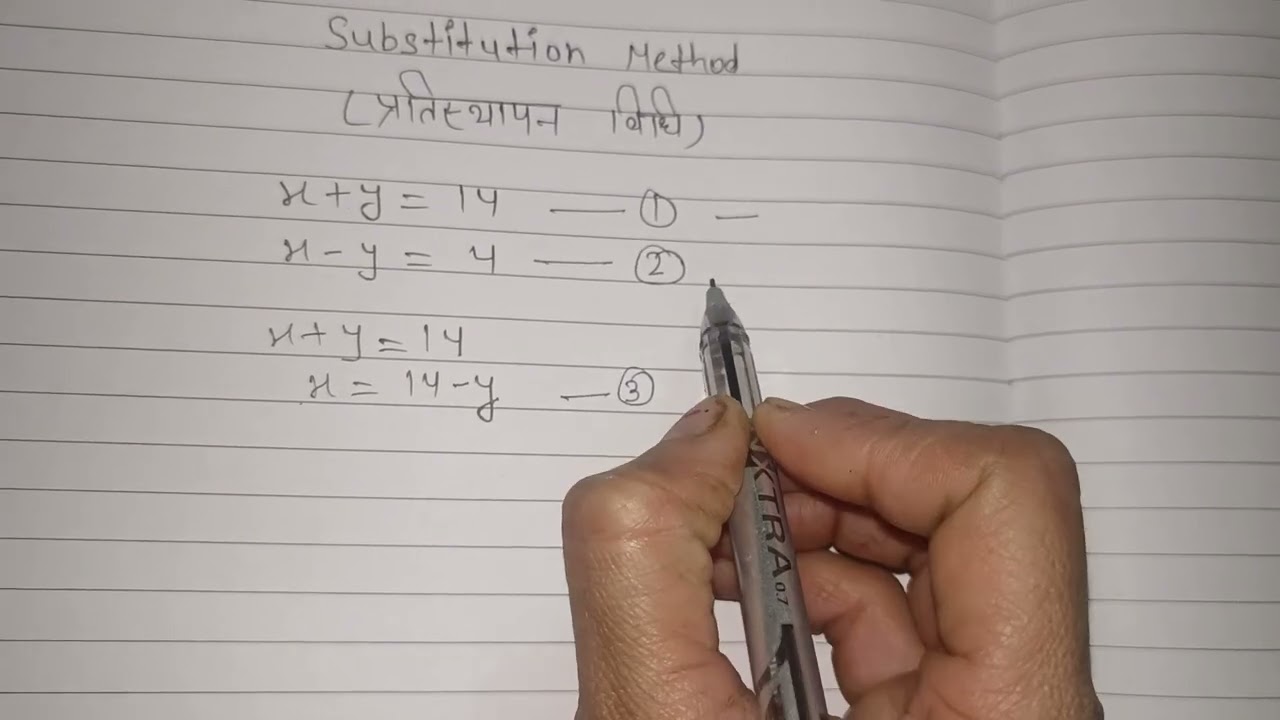 Substitution Method
(प्रतिस्थापन विधि)
x + y = 14 — ① —
x - y = 4 — ②
x + y = 14
x = 14 - y — ③
XTRA 0.7